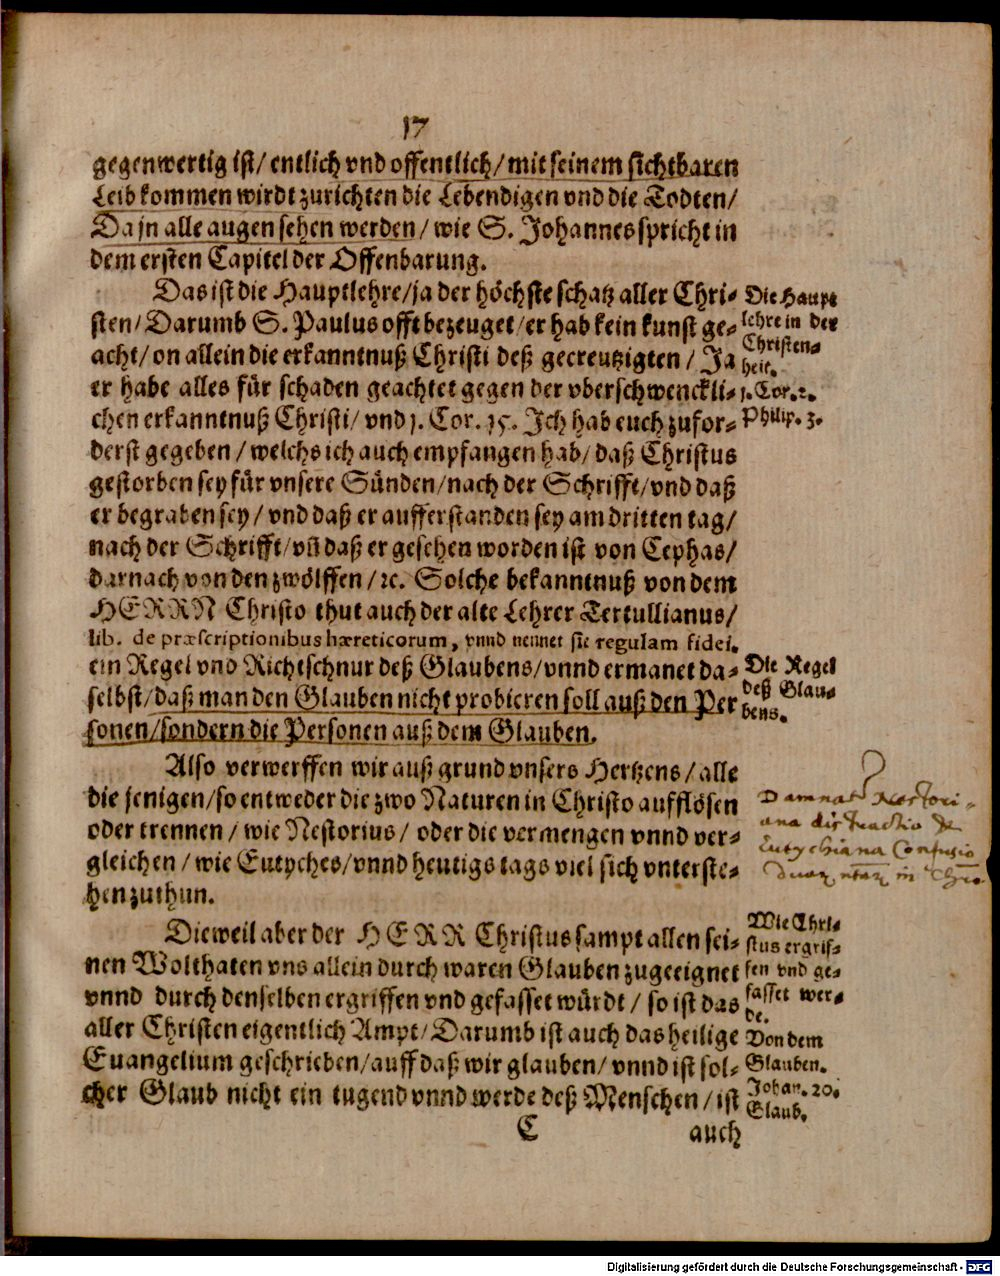 17
gegenwertig ist/ entlich vnd offentlich/ mit seinem sichtbaren
Leib kommen wirdt zurichten die Lebendigen vnd die Todten/
Da jn alle augen sehen werden/ wie S. Johannes spricht in
dem ersten Capitel der Offenbarung.
Das ist die Hauptlehre/ ja der höchste schatz aller Chri-
sten/ Darumb S. Paulus offt bezeuget/ er hab kein kunst ge-
acht/ on allein die erkanntnuß Christi deß gecreutzigten/ Ja
er habe alles für schaden geachtet gegen der vberschwenckli-
chen erkanntnuß Christi/ vnd 1. Cor. 15. Ich hab euch zufor-
derst gegeben/ welchs ich auch empfangen hab/ daß Christus
gestorben sey für vnsere Sünden/ nach der Schrifft/ vnd daß
er begraben sey/ vnd daß er aufferstanden sey am dritten tag/
nach der Schrifft/ vñ daß er gesehen worden ist von Cephas/
darnach von den zwölffen/ ꝛc. Solche bekanntnuß von dem
HERRN Christo thut auch der alte Lehrer Tertullianus/
lib. de præscriptionibus hæreticorum, vnnd nennet sie regulam fidei.
ein Regel vnd Richtschnur deß Glaubens/ vnnd ermanet da-
selbst/ daß man den Glauben nicht probieren soll auß den Per
sonen/ sondern die Personen auß dem Glauben.
Also verwerffen wir auß grund vnsers Hertzens/ alle
die jenigen/ so entweder die zwo Naturen in Christo aufflösen
oder trennen/ wie Nestorius/ oder die vermengen vnnd ver-
gleichen/ wie Eutyches/ vnnd heutigs tags viel sich vnterste-
hen zuthun.
Dieweil aber der HERR Christus sampt allen sei-
nen Wolthaten vns allein durch waren Glauben zugeeignet
vnnd durch denselben ergriffen vnd gefasset würdt/ so ist das
aller Christen eigentlich Ampt/ Darumb ist auch das heilige
Euangelium geschrieben/ auff daß wir glauben/ vnnd ist sol-
cher Glaub nicht ein tugend vnnd werde deß Menschen/ ist
C
auch
Die Haupt
lehre in der
Christen-
heit.
1. Cor. 2.
Philip. 3.
Die Regel
deß Glau-
bens.
Damnat Nestori-
ana distractio &
Eutychiana Confusio
in
Wie Chri-
stus ergrif-
fen vnd ge-
fasset wer-
de.
Von dem
Glauben.
Johan. 20.
Glaub.
Digitalisierung gefördert durch die Deutsche Forschungsgemeinschaft - DFG